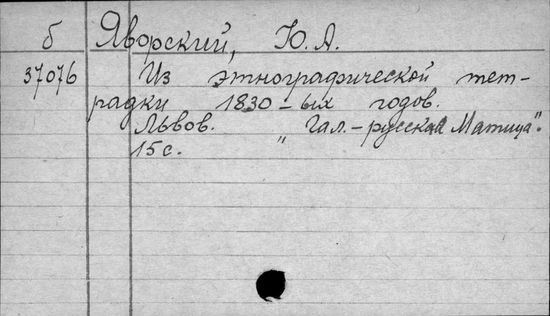 б Яворский, Ю. А.
37076 Из этнографической тет-
радки 1830-ых годов.
Львов. "Гал.-русская Матица".
15 с.